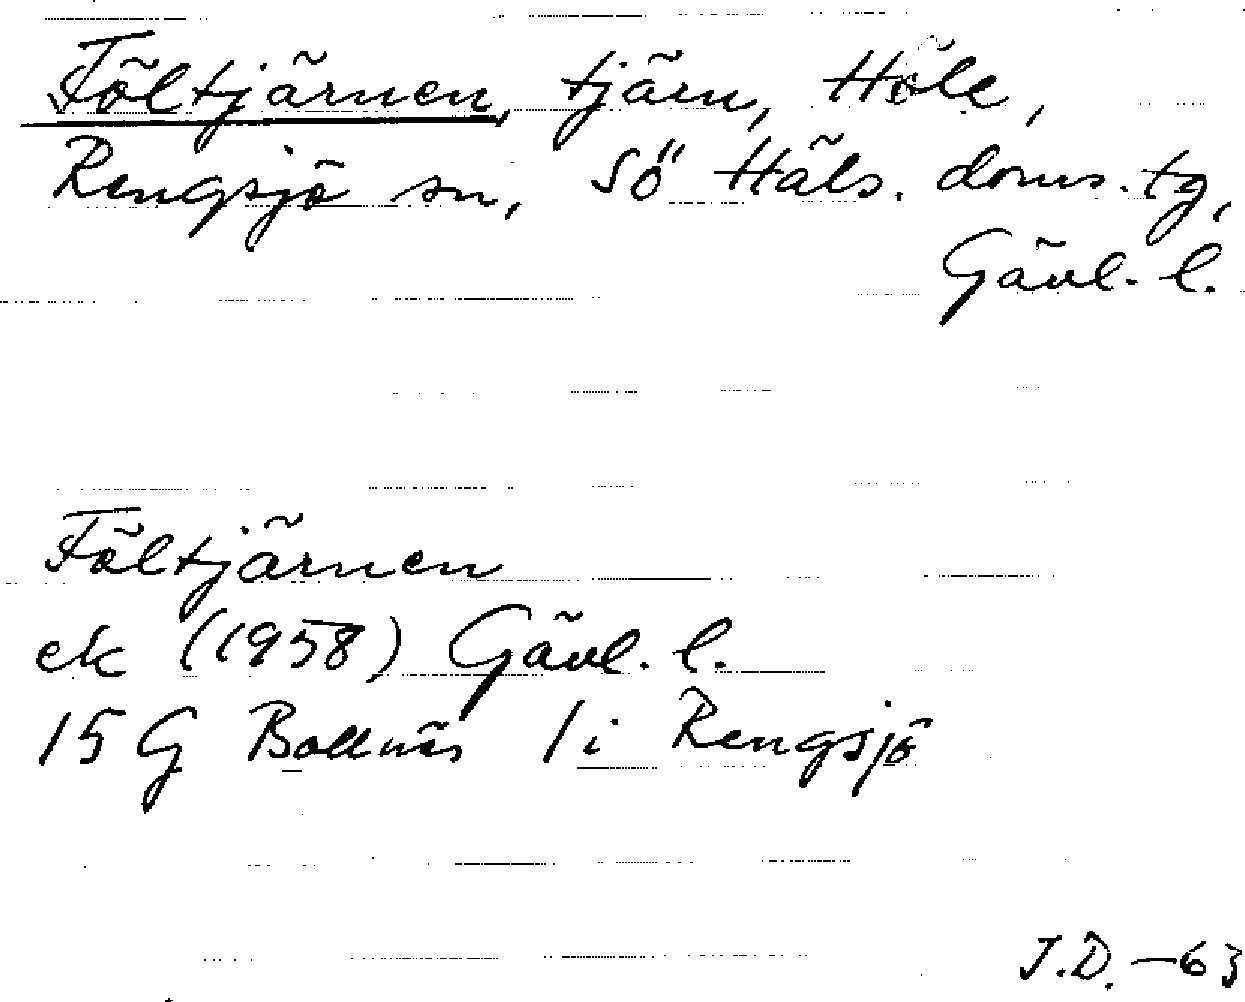 Föltjärnen, tjärn, Höle,
Rengsjö sn, Sö Häls. doms. tg,
Gävl. l.
Föltjärnen
ek (1958) Gävl. l.
15 G Bollnäs 1 i Rengsjö
J.D. -63